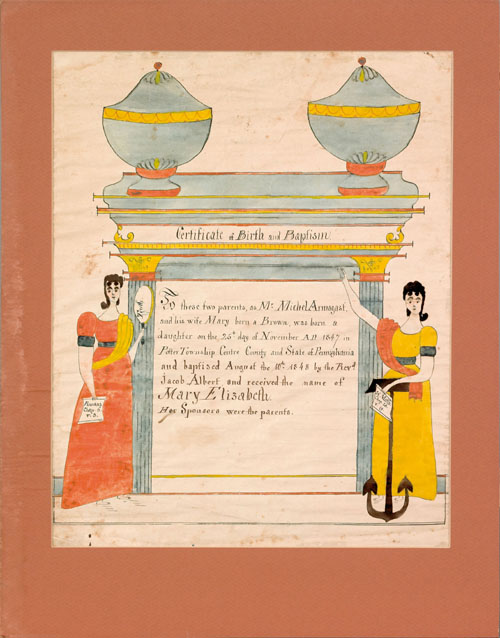 Certificate of Birth and Baptism
To these two parents, as Mr. Michel Armagast,
and his wife Mary born a Brown, was born a
daughter on the 25th day of November A.D. 1847 in
Potter Township Centre County and State of Pennsylvania
and baptised August the 10th 1848 by the Revd
Jacob Albert and received the name of
Mary Elizabeth.
Her Sponsors were the parents.
Romans
Chap. 6.
v. 3.